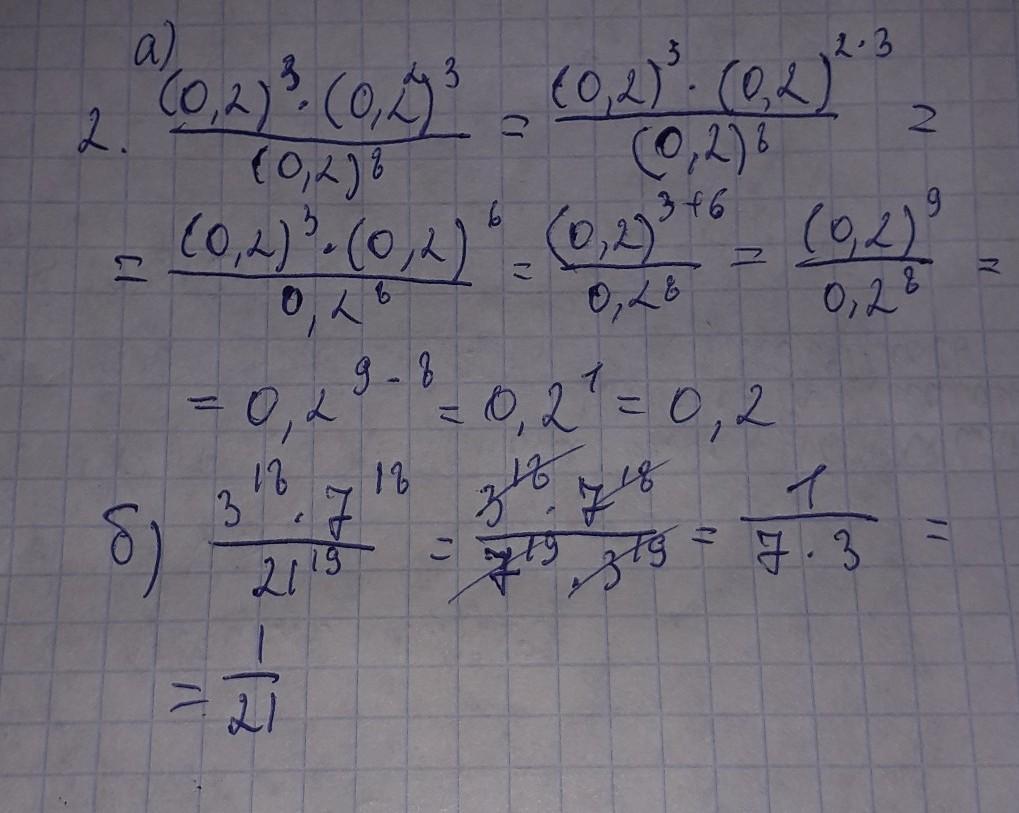 а)
2. (0,2)³ · (0,2²)³ / (0,2)⁸ = (0,2)³ · (0,2)^(2·3) / (0,2)⁸ =
= (0,2)³ · (0,2)⁶ / 0,2⁸ = (0,2)^(3+6) / 0,2⁸ = (0,2)⁹ / 0,2⁸ =
= 0,2^(9-8) = 0,2¹ = 0,2
б) 3¹⁸ · 7¹⁸ / 21¹⁹ = 3¹⁸ · 7¹⁸ / 7¹⁹ · 3¹⁹ = 1 / 7 · 3 =
= 1 / 21